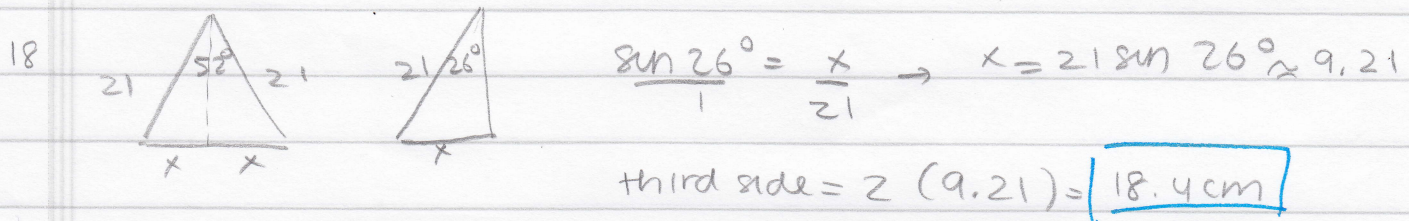 18
52°
21 21
x x
21 26°
x
sin 26° / 1 = x / 21 → x = 21 sin 26° ≈ 9.21
third side = 2 (9.21) = 18.4 cm